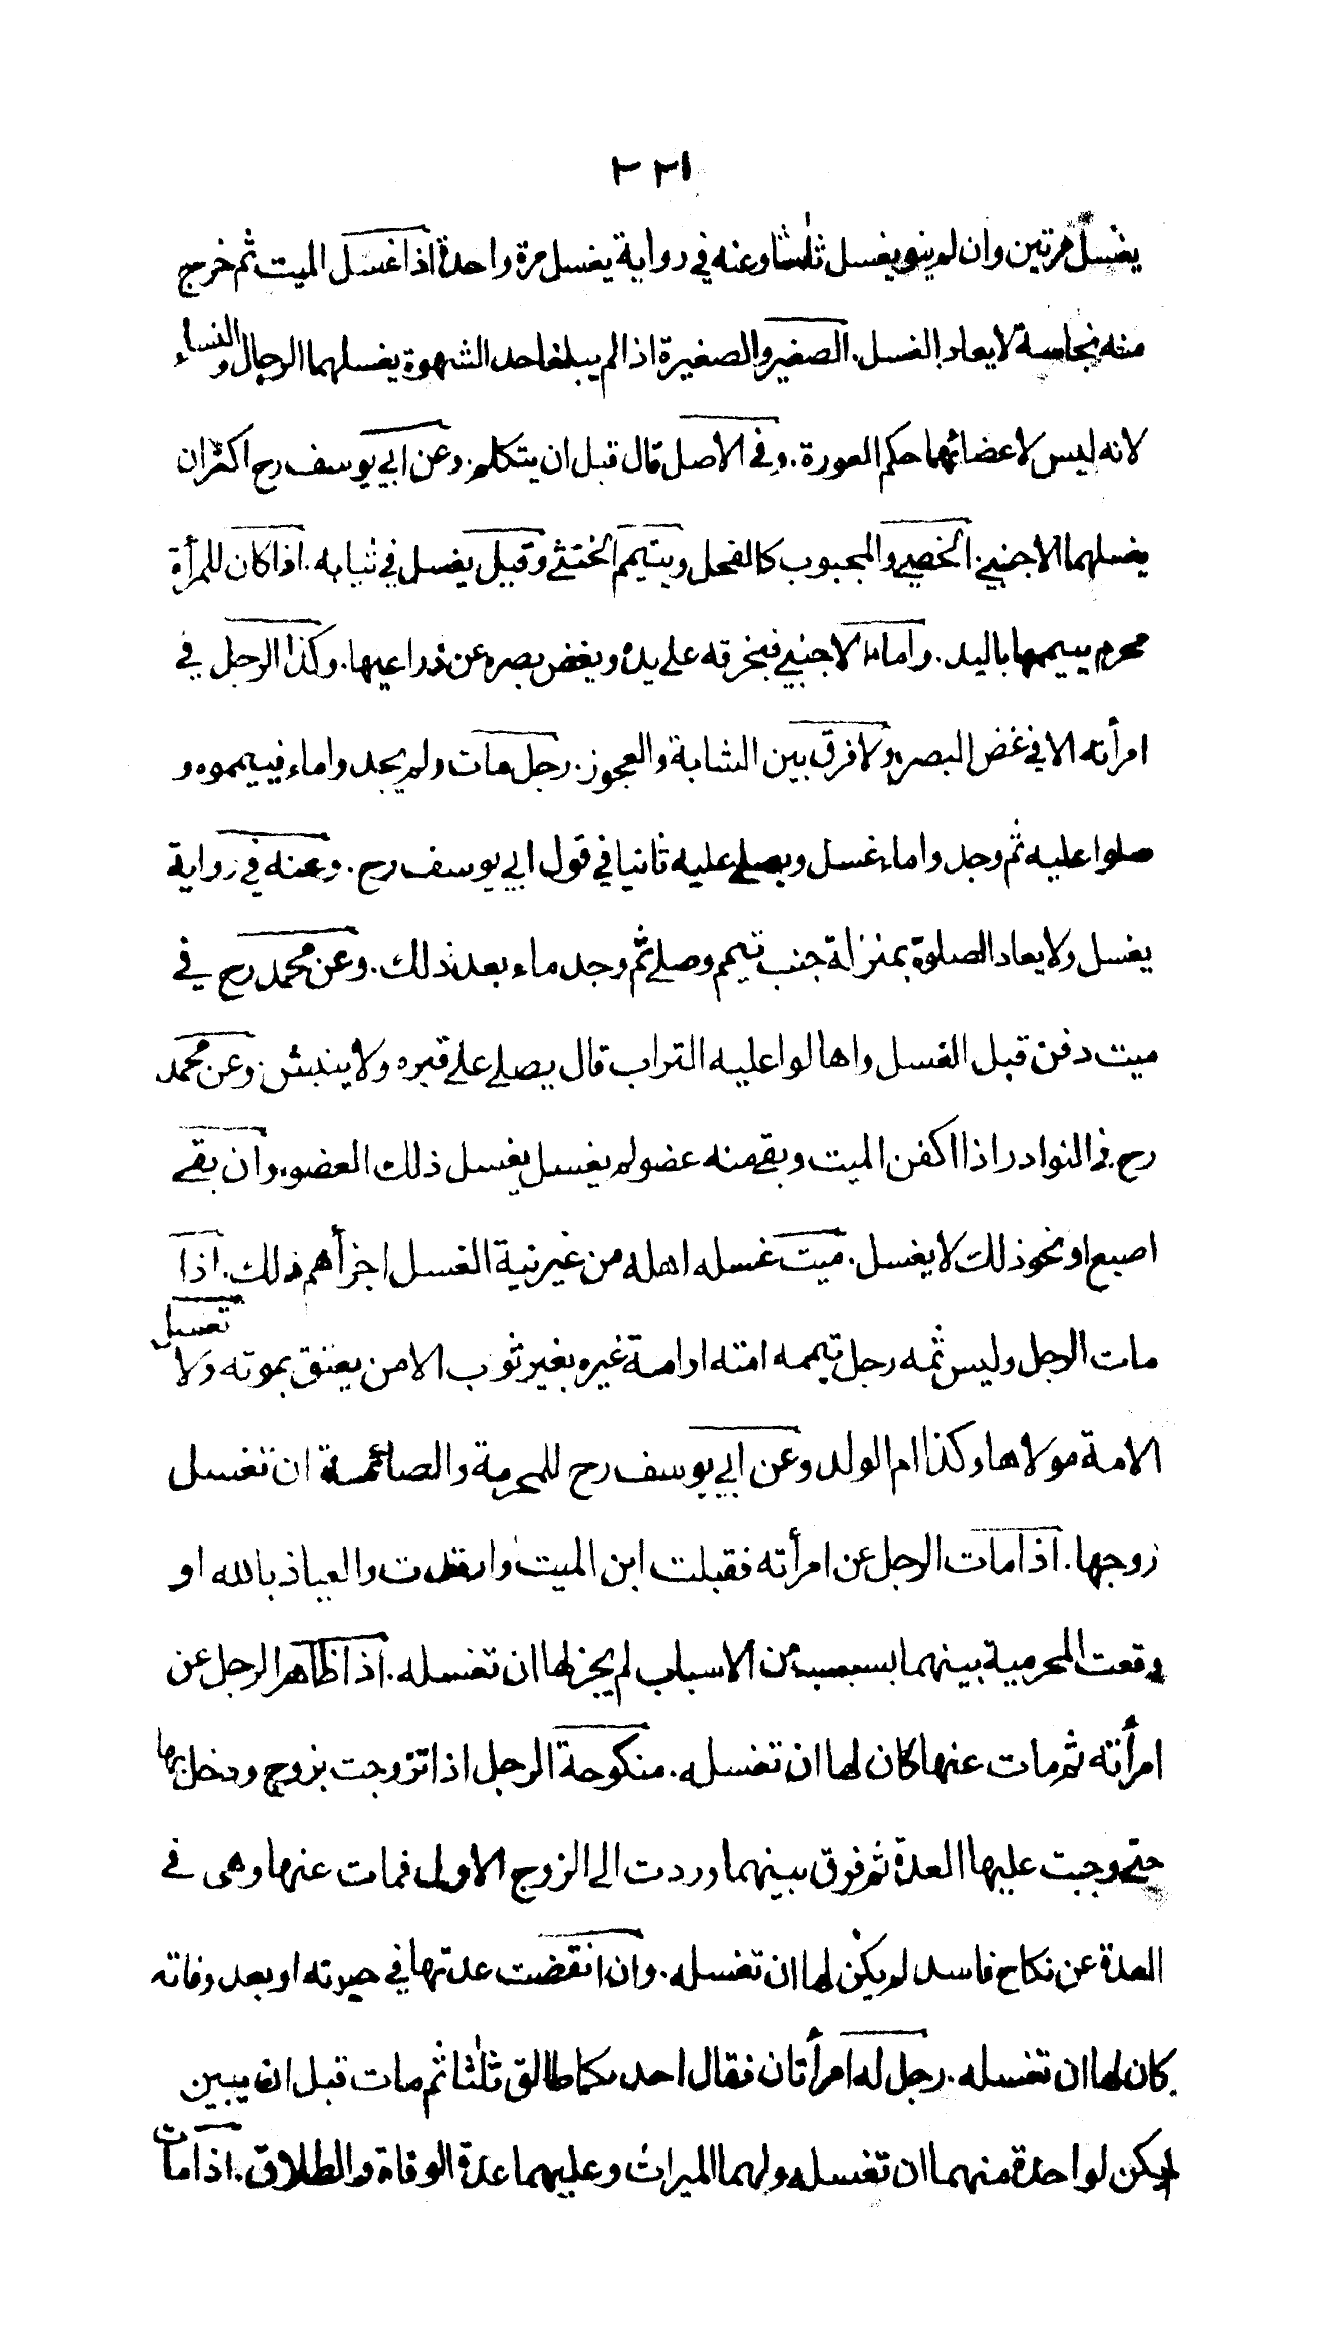 ٢٢١
يغسل مرتين وان لم ينو يغسل ثلثا وعنه في رواية يغسل مرة واحدة اذا غسل الميت ثم خرج
منه نجاسة لا يعاد الغسل. الصغير والصغيرة اذا لم يبلغا حد الشهوة يغسلهما الرجال والنساء
لانه ليس لاعضائهما حكم العورة. وفي الاصل قال قبل ان يتكلم. وعن ابي يوسف رح اكثر ان
يغسلهما الاجنبي. الخصي والمجبوب كالفحل وييتمم الخنثى وقيل يغسل في ثيابه. اذا كان للمرأة
محرم ييممها باليد. واما الاجنبي فبخرقه على يده ويغض بصره عن ذراعيها. وكذا الرجل في
امرأته الا في غض البصر ولا فرق بين الشابة والعجوز. رجل مات ولم يجدوا ماء فييمموه و
صلوا عليه ثم وجدوا ماء غسل ويصلى عليه ثانيا في قول ابي يوسف رح. وعنه في رواية
يغسل ولا يعاد الصلوة بمنزلة جنب تيمم وصلى ثم وجد ماء بعد ذلك. وعن محمد رح في
ميت دفن قبل الغسل واهالوا عليه التراب قال يصلى على قبره ولا ينبش. وعن محمد
رح في النوادر اذا اكفن الميت وبقي منه عضو لم يغسل يغسل ذلك العضو. وان بقي
اصبع او نحو ذلك لا يغسل. ميت غسله اهله من غير نية الغسل اجزأهم ذلك. اذا
مات الرجل وليس ثمه رجل تيممه امته او امة غيره بغير ثوب الا من يعتق بموته ولا تغسل
الامة مولاها وكذا ام الولد وعن ابي يوسف رح للمحرمة والصائمة ان تغسل
زوجها. اذا مات الرجل عن امرأته فقبلت ابن الميت وارتدت والعياذ بالله او
وقعت المحرمية بينهما بسبب من الاسباب لم يجز لها ان تغسله. اذا ظاهر الرجل عن
امرأته ثم مات عنها كان لها ان تغسله. منكوحة الرجل اذا تزوجت بزوج ودخل بها
حتى وجبت عليها العدة ثم فرق بينهما وردت الى الزوج الاول فمات عنها وهى في
العدة عن نكاح فاسد لم يكن لها ان تغسله. وان انقضت عدتها في حيوته او بعد وفاته
كان لها ان تغسله. رجل له امرأتان فقال احدىكما طالق ثلثا ثم مات قبل ان يبين
لم يكن لواحدة منهما ان تغسله ولهما الميراث وعليهما عدة الوفاة والطلاق. اذا مات